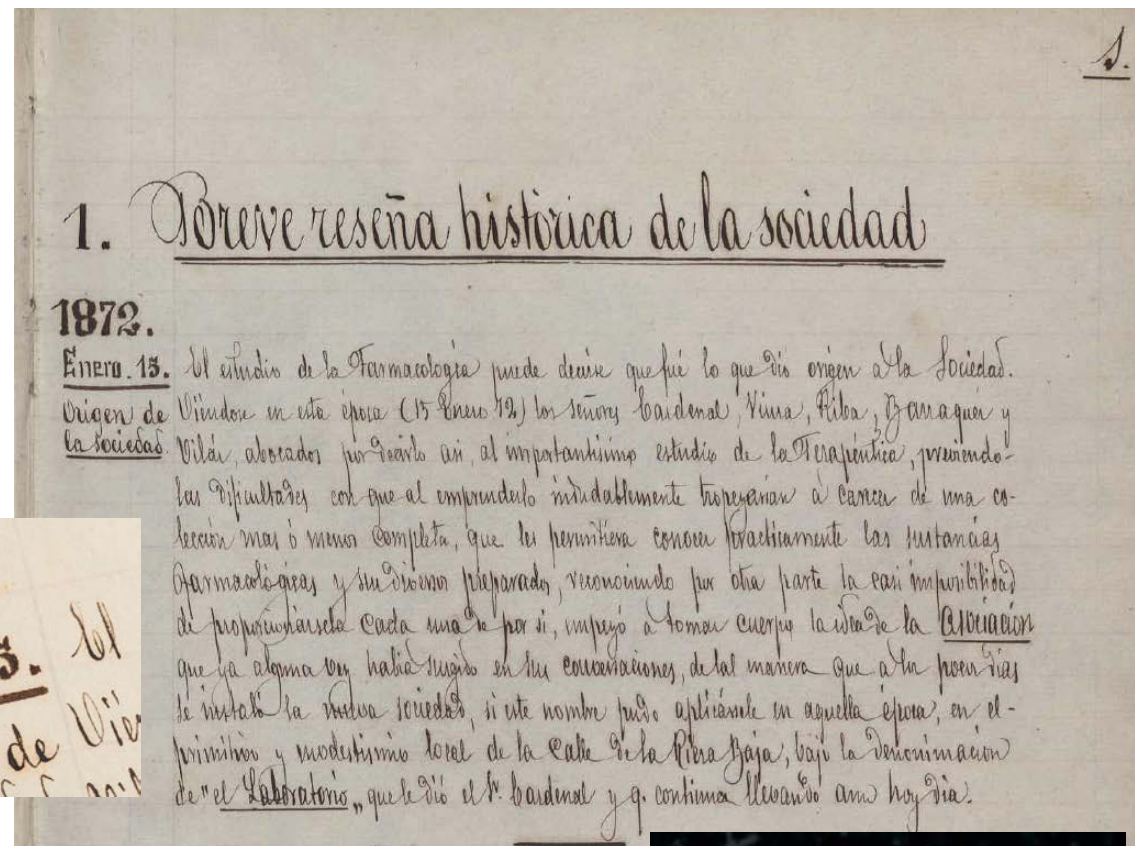 1.
1. Breve reseña histórica de la sociedad
1872.
Enero. 15.
Origen de
la sociedad.
El estudio de la Farmacología puede decirse que fué lo que dió origen a la Sociedad.
Viéndose en esta época (15 Enero 72) los señores Cardenal, Viura, Riba, Barraquer y
Vilár, abocados por decirlo asi, al importantísimo estudio de la Terapeutica, previendo-
las dificultades con que al emprenderlo indudablemente tropezarian á carecer de una co-
lección mas ó menos completa, que les permitiera conocer practicamente las sustancias
farmacológicas y sus diversos preparados, reconociendo por otra parte la casi imposibilidad
de proporcionársela cada uno de por si, empezó á tomar cuerpo la idea de la Asociación
que ya alguna vez habia surgido en sus conversaciones, de tal manera que a los pocos dias
se instaló la nueva sociedad, si este nombre pudo aplicársele en aquella época, en el-
primitivo y modestisimo local de la Calle de la Riera Baja, bajo la denominacion
de "el Laboratorio„ que le dió el Sr. Cardenal y q. continua llevando aun hoy dia.
5. El
de Vié